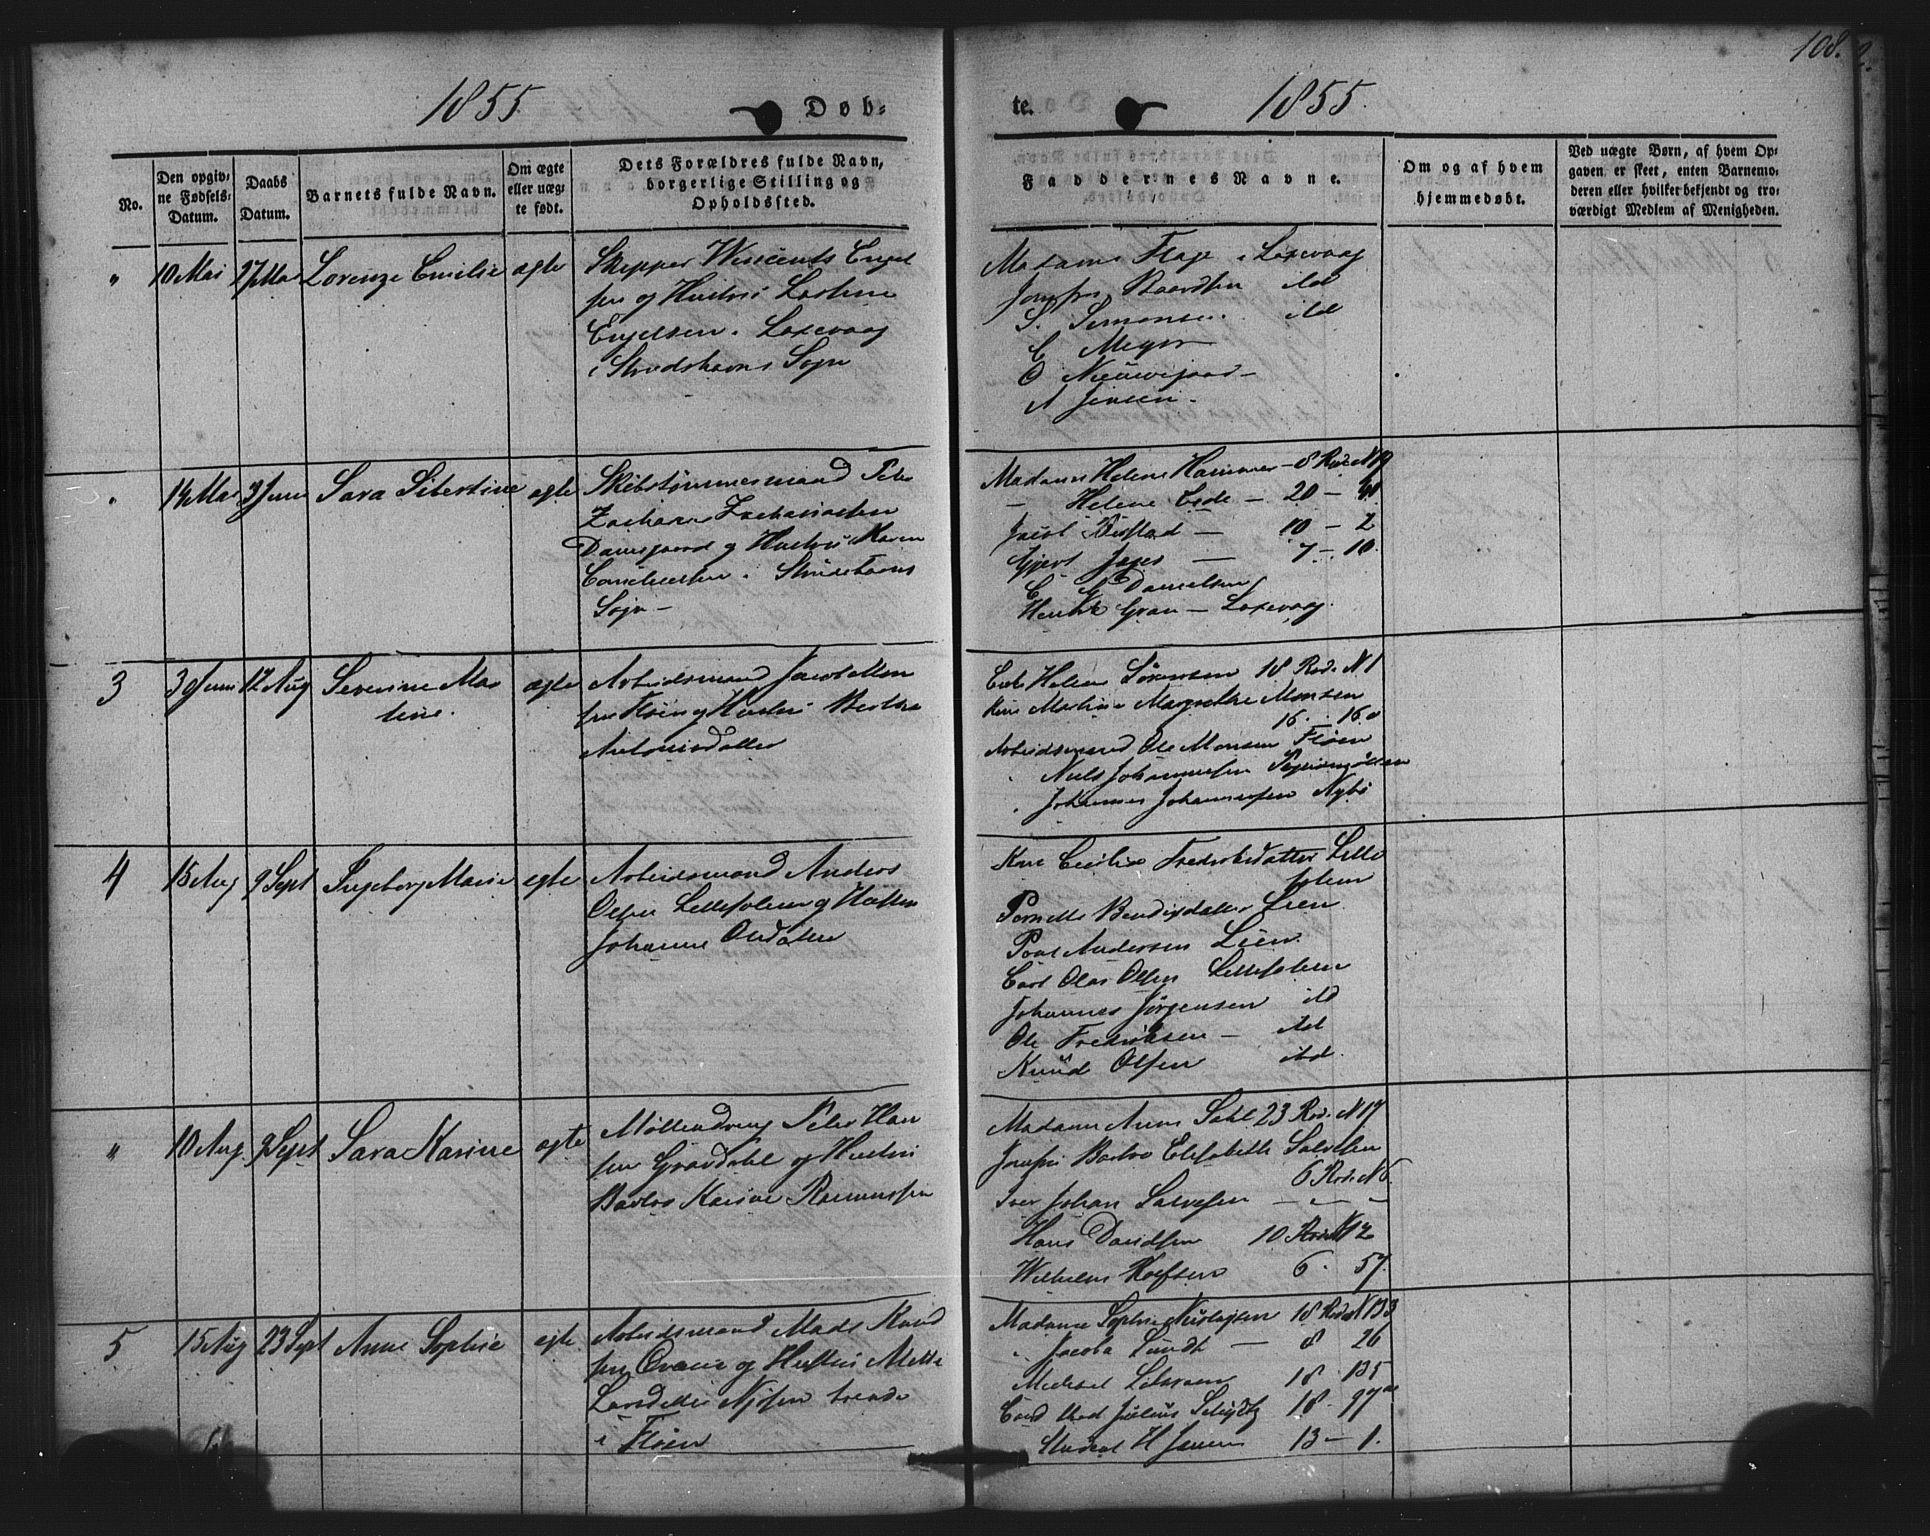 108.
1855
Døb-
te.
1855.
No.
Den opgiv-
ne Fødsels-
Datum.
Daabs
Datum.
Barnets fulde Navn.
Om ægte
eller uæg-
te født.
Dets Forældres fulde Navn,
borgerlige Stilling og
Opholdssted.
Faddernes Navne.
Om og af hvem
hjemmedøbt.
Ved uægte Børn, af hvem Op-
gaven er skeet, enten Barnemo-
deren eller hvilker bekjendt og tro-
værdigt Medlem af Menigheden.
" 10 Mai 17 Mai Lorenze Emilie ægte
Skipper Wincents Engel
sen og Hustru
Engelsen. Laxevaag
i Strudshavns Sogn
Madame i Laxevaag
Jomfru ibd
S. Simonsen. ibd
C Meyer
O
A Jensen.
" 14 Mai 3 Juni Sara Sibertine ægte
Skibstømmermand Peter
Zacharias Zachariassen
Damsgaard og Hustru Maren
Corneliussen. Strudshavns
Sogn
Madame Helene Hammer - 8 Rode N 19
- Helene Eide - 20 -
Jacob - 10 - 2
Gjert Jager - 7 - 10.
C G Danielsen
Henrik Gran - Laxevaag.
3 3 Juni 12 Aug Severine Mar
tine.
ægte
Arbeidsmand Jacob Mon
sen Fløen og Hustru Berthe
Antonisdatter
Helene Sørensen 18 Rode. N 1
Martine Margrethe Monsen
16. 16
Arbeidsmand Ole Monsen Fløen
" Niels Johannessen
" Johannes Johannessen Nybø
4 15 Aug 9 Sept Ingeborg Marie egte
Arbeidsmand Anders
Olsen Lillesolem og Hustru
Johanne Olsdatter
Kone Cecilie Fredriksdatter Lille
solem
Pernelle Bendixdatter Lien
Poul Andersen Lien.
Carl Olai Olsen Lillesolem
Johannes Jørgensen ibd
Ole Fredriksen - ibd
Knud Olsen ibd.
" 10 Aug. 9 Sept Sara Karine ægte
Møllendreng Peter Han
sen Gravdahl og Hustru
Barbro Karine Rasmussen
Madame Anne Dahl 23 Rod. N 17
Jomfru Barbro Elisabeth Salvesen
6 Rod. N 6
Iver Johan Salvesen - " -
Hans Davidsen 10 Rode N 12
Wilhelm 6. 57.
5 15 Aug 23 Sept Anne Sophie egte
Arbeidsmand Mads Knud
sen og Hustru Mette
Larsdatter
i Fløen
Madame Sophie 18 Rode N 133
" Jacoba Lundt - 8 26
Michael 18 - 135
Cand Med Julius 18. 97
Student H Jansen 13 - 1.